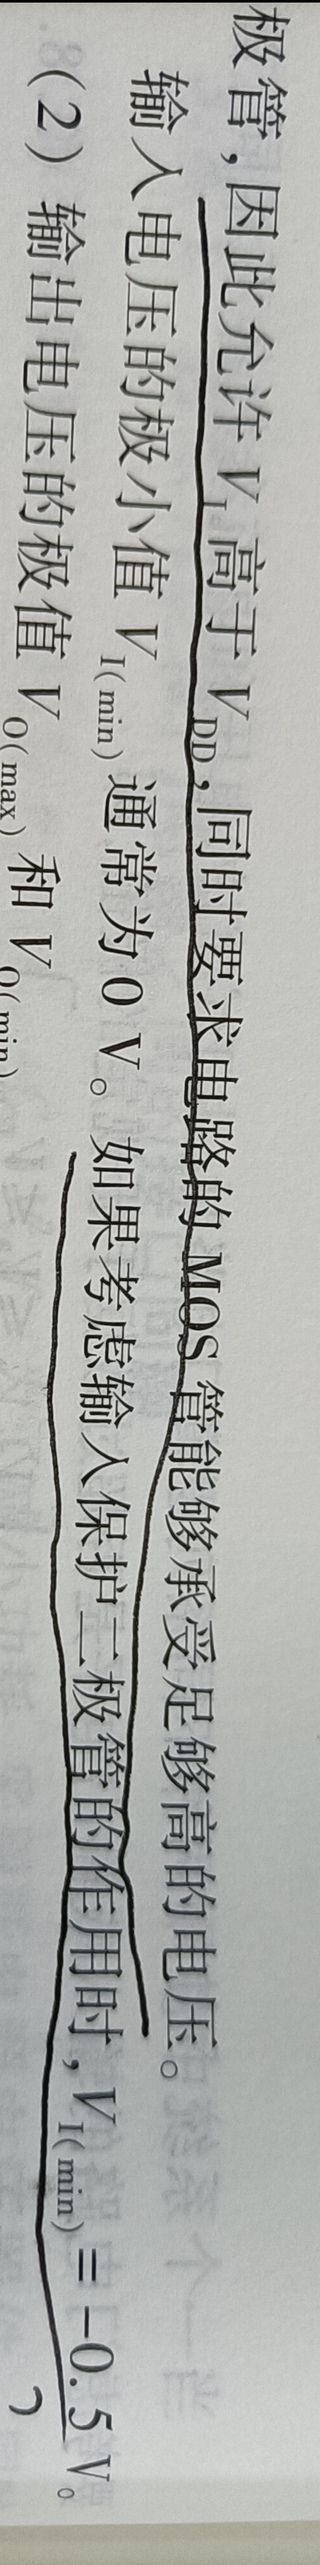 极管，因此允许 V_I 高于 V_DD，同时要求电路的 MOS 管能够承受足够高的电压。
输入电压的极小值 V_I(min) 通常为 0 V。如果考虑输入保护二极管的作用时，V_I(min) = -0.5 V。
（2）输出电压的极值 V_O(max) 和 V_O(min)